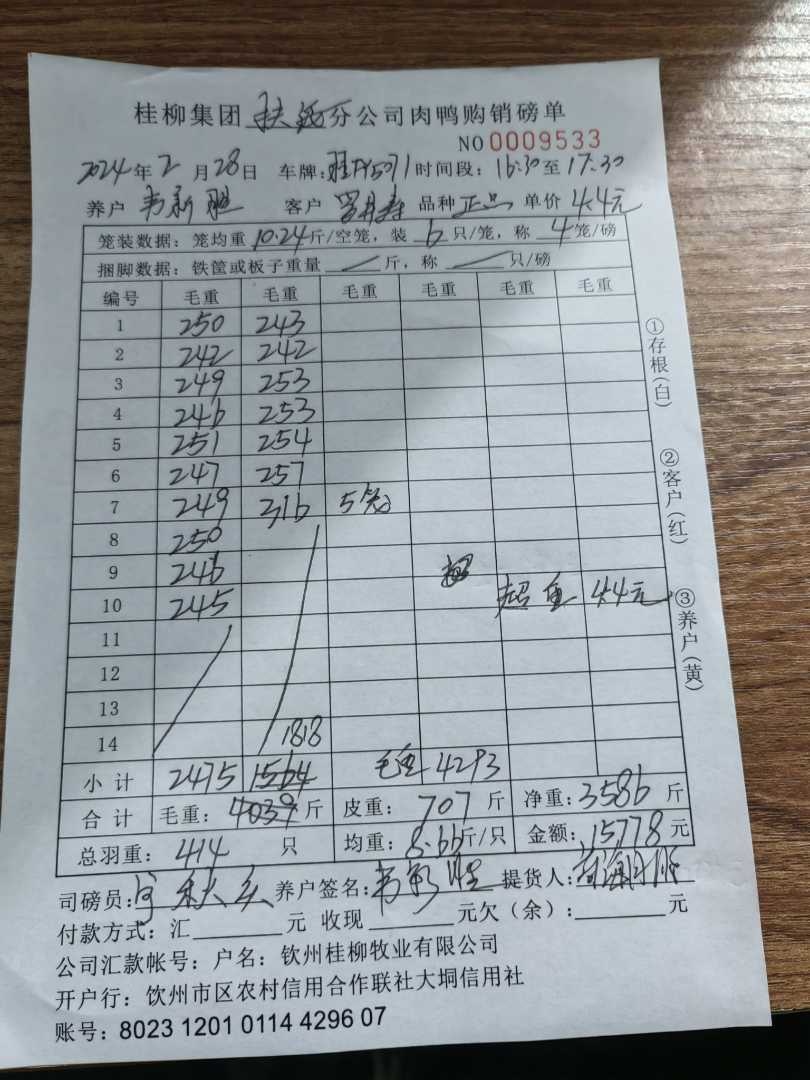 桂柳集团 扶绥分公司肉鸭购销磅单
NO 0009533
2024年2月28日 车牌: 时间段：16:30至17:30
养户 韦新胜 客户 品种 正品 单价 4.4元
笼装数据：笼均重 10.24斤/空笼，装 6 只/笼，称 4 笼/磅
捆脚数据：铁筐或板子重量 ／ 斤，称 ／ 只/磅
编号 毛重 毛重 毛重 毛重 毛重 毛重
1 250 243
2 242 242
3 249 253
4 246 253
5 251 254
6 247 257
7 249 316 5笼
8 250
9 246
10 245 超重 4.4元
11
12
13
14 1818
小计 2475 1564 毛重 4293
合计 毛重：4039斤 皮重：707斤 净重：3586斤
总羽重：414 只 均重：8.66斤/只 金额：15778元
司磅员： 养户签名：韦新胜 提货人：
付款方式：汇 元 收现 元欠（余）： 元
公司汇款帐号：户名：钦州桂柳牧业有限公司
开户行：饮州市区农村信用合作联社大垌信用社
账号：8023 1201 0114 4296 07
①存根(白)
②客户(红)
③养户(黄)